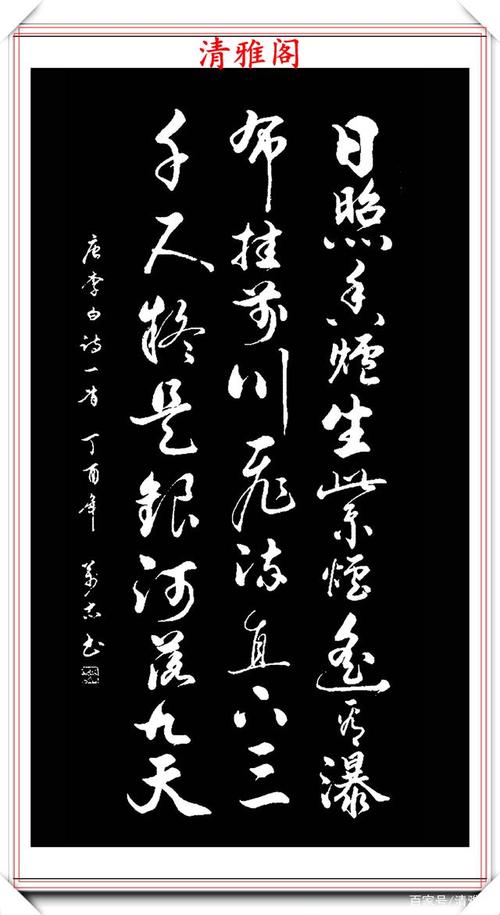 清雅阁
日照香爐生紫煙遙看瀑
布挂前川飛流直下三
千尺疑是銀河落九天
唐李白詩一首 丁酉年 萬志书
百家号/清雅